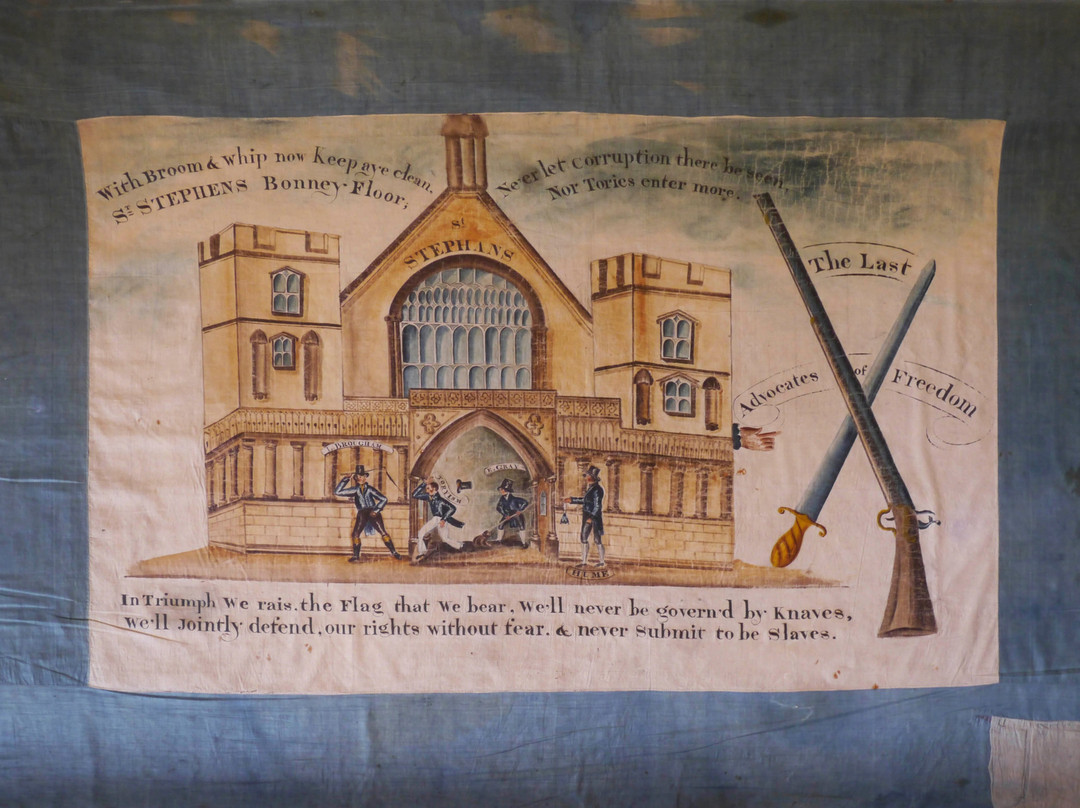 With Broom & whip now Keep aye clean.
ST STEPHENS Bonney-Floor;
Ne'er let Corruption there be seen,
Nor Tories enter more.
St
STEPHANS
The Last
Advocates of Freedom
L. BROUGHAM
E. GRAY
HUME
In Triumph We rais. the Flag that We bear. We'll never be govern'd by Knaves,
We'll Jointly defend, our rights without fear. & never Submit to be Slaves.